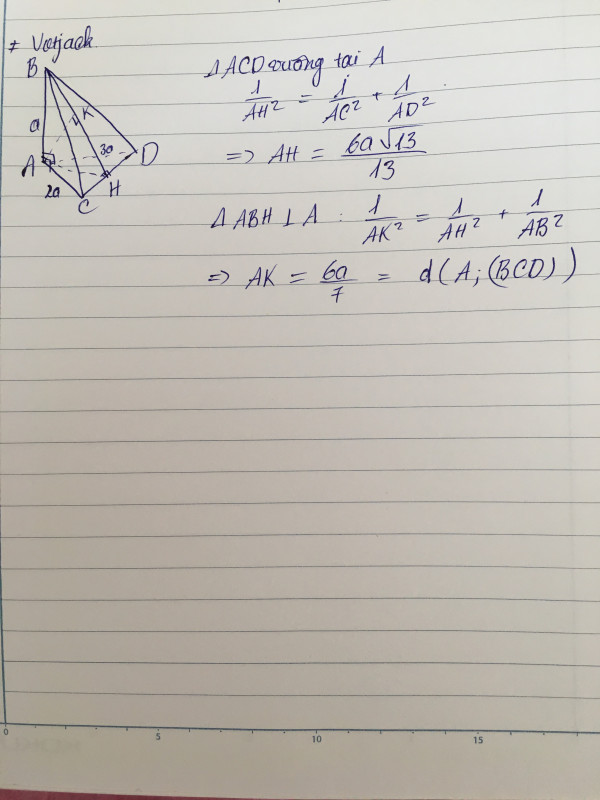 * Vietjack
B
a
K
3a
D
A
2a
H
C
Δ ACD vuông tại A
1/AH² = 1/AC² + 1/AD²
=> AH = 6a√13/13
Δ ABH ⊥ A : 1/AK² = 1/AH² + 1/AB²
=> AK = 6a/7 = d(A; (BCD))
0 5 10 15